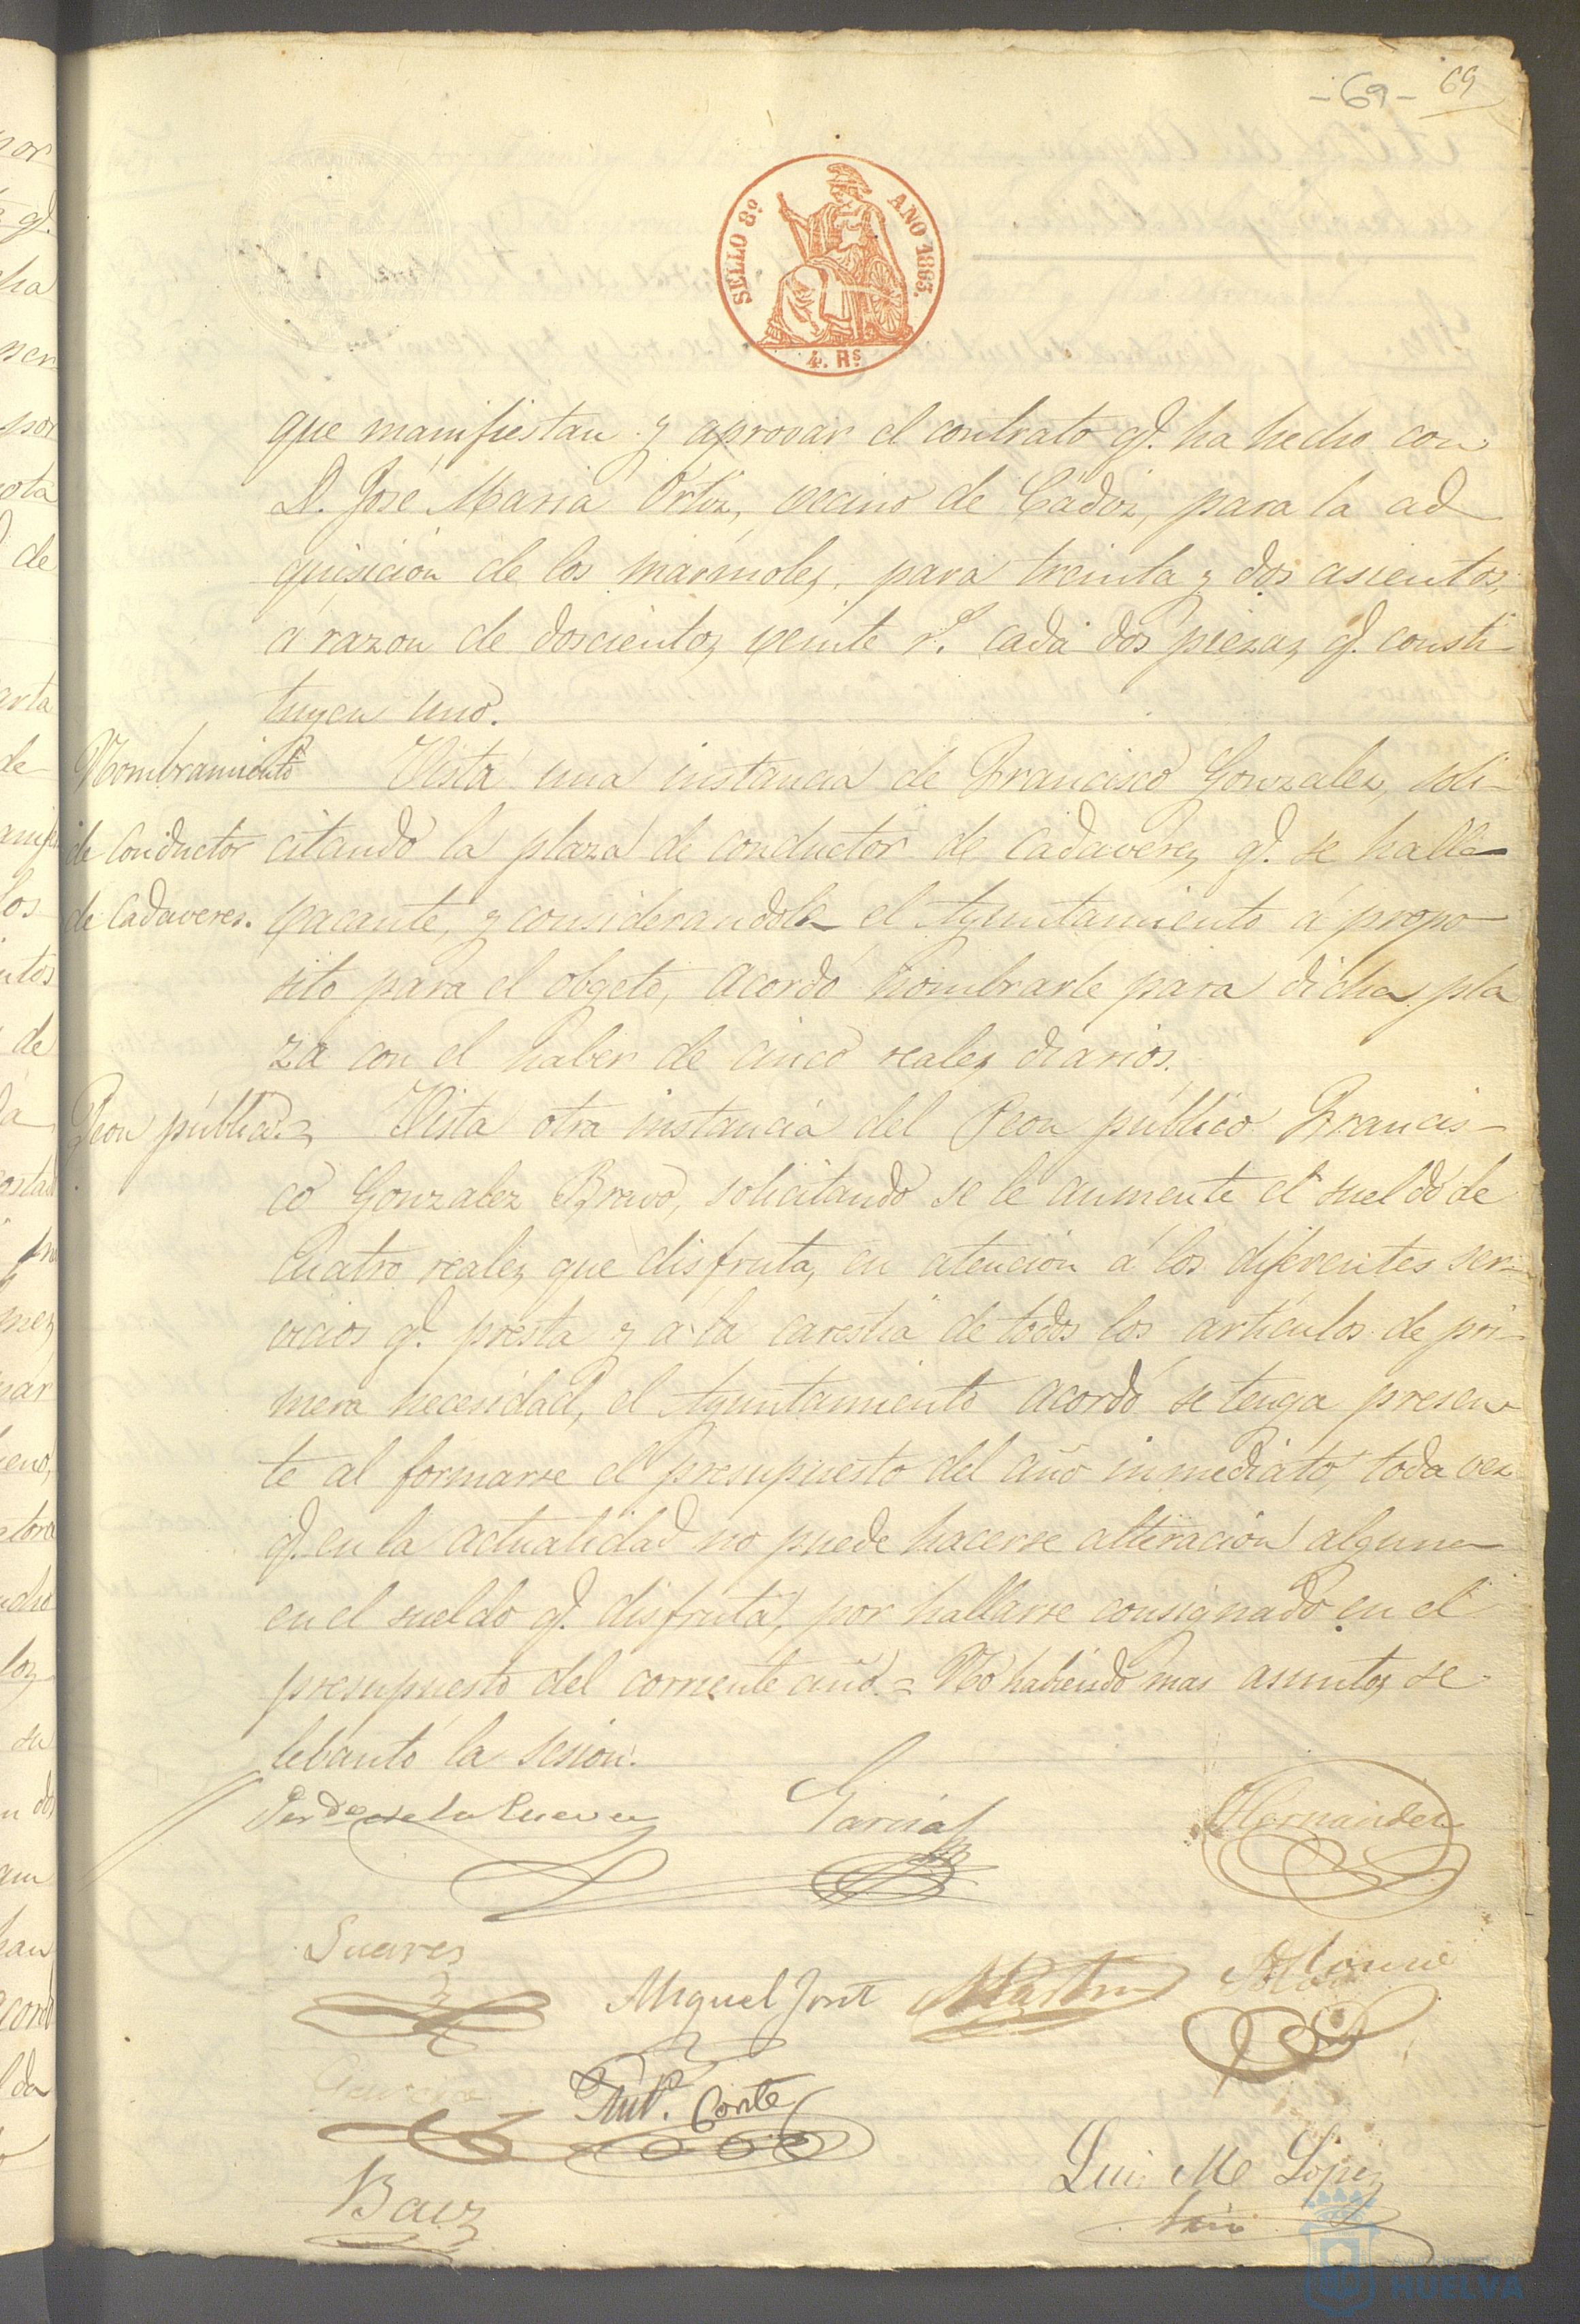 - 69 - 69
SELLO 8º AÑO 1863.
4. Rs
que manifiestan y aprovar el contrato q.e ha hecho con
D. José Maria Ortiz, vecino de Cadiz, para la ad
quisicion de los marmoles, para treinta y dos asientos,
á razon de doscientos veinte r.s cada dos piezas q.e consti-
tuyen uno.
Nombramiento
de Conductor
de Cadaveres.
Vista una instancia de Francisco Gonzalez, soli-
citando la plaza de conductor de Cadaveres q.e se halla
vacante, y considerandole el Ayuntamiento á propo-
sito para el obgeto, acordó nombrarle para dicha pla
za con el haber de cinco reales diarios.
Peon público.=
Vista otra instancia del Peon público Francis-
co Gonzalez Bravo, solicitando se le aumente el sueldo de
cuatro reales que disfruta, en atencion á los diferentes ser-
vicios q.e presta y á la carestia de todos los articulos de pri-
mera necesidad, el Ayuntamiento acordó se tenga presen-
te al formarse el presupuesto del año inmediato, toda vez
q.e en la actualidad no puede hacerse alteracion alguna
en el sueldo q.e disfruta, por hallarse consignado en el
presupuesto del corriente año.= No habiendo mas asuntos se
lebantó la sesion.
de la Cueva Garcia Hernandez
Suarez
Miguel Jont
Ant.o Conte
Baez
Luis M.a Lopez
HUELVA